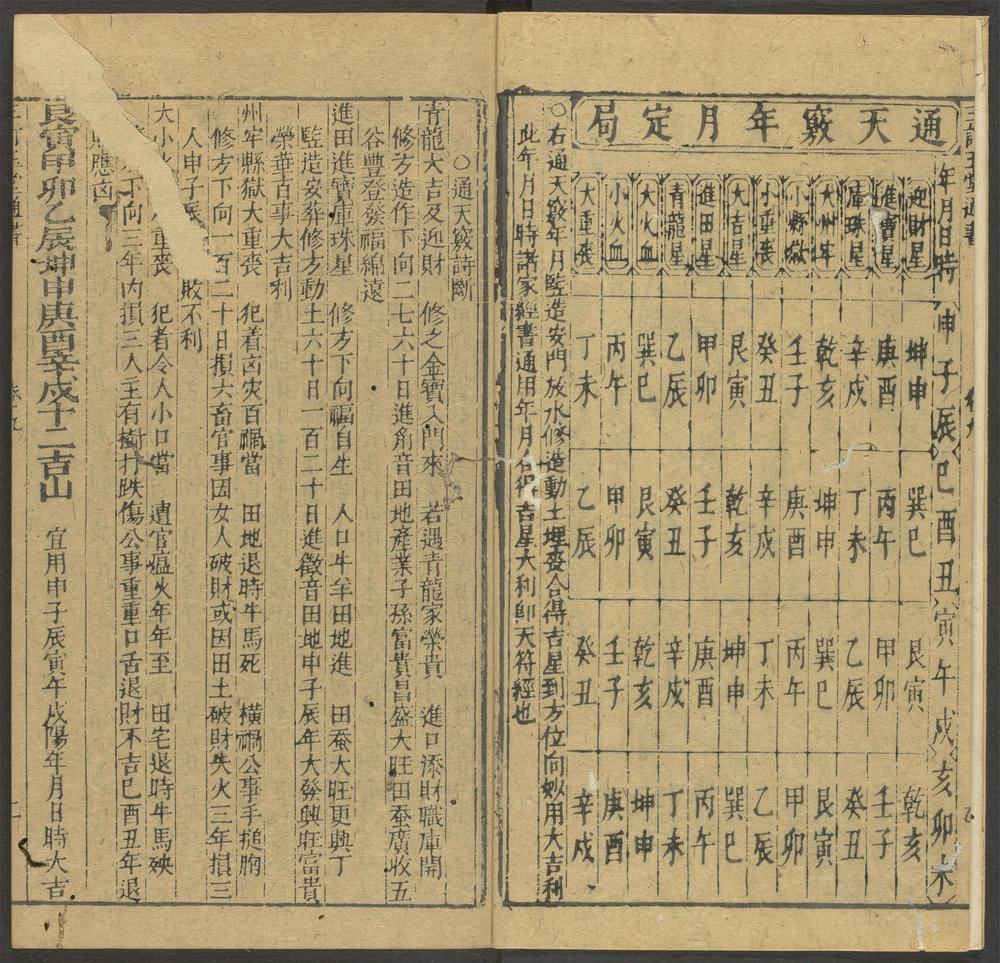 通天竅年月定局
年月日時 申子辰 巳酉丑 寅午戌 亥卯未
迎財星 坤申 巽巳 艮寅 乾亥
進寶星 庚酉 丙午 甲卯 壬子
庫珠星 辛戌 丁未 乙辰 癸丑
大州牢 乾亥 坤申 巽巳 艮寅
小縣獄 壬子 庚酉 丙午 甲卯
小重喪 癸丑 辛戌 丁未 乙辰
大吉星 艮寅 乾亥 坤申 巽巳
進田星 甲卯 壬子 庚酉 丙午
青龍星 乙辰 癸丑 辛戌 丁未
大火血 巽巳 艮寅 乾亥 坤申
小火血 丙午 甲卯 壬子 庚酉
大重喪 丁未 乙辰 癸丑 辛戌
○右通天竅年月監造安門放水修造動土埋喪合得吉星到方位向妙用大吉利
此年月日時諸家經書通用年月合得吉星大利即天符經也
○通天竅詩斷
青龍大吉及迎財 修之金寶入門來 若遇青龍家榮貴 進口添財職庫開
修方造作下向二七六十日進角音田地產業子孫富貴昌盛大旺田蚕廣收五
谷豐登發福綿遠
進田進寶庫珠星 修方下向福自生 人口牛羊田地進 田蚕大旺更興丁
監造安葬修方動土六十日一百二十日進徵音田地申子辰年大發興旺富貴
榮華百事大吉利
州牢縣獄大重喪 犯着凶灾百禍當 田地退時牛馬死 橫禍公事手搥胸
修方下向一百二十日損六畜官事因女人破財或因田土破財失火三年損三
人申子辰 敗不利
大小火 重喪 犯者令人小口當 遭官瘟火年年至 田宅退時牛馬殃
下向三年內損三人主有樹打跌傷公事重重口舌退財不吉巳酉丑年退
財應凶
艮寅甲卯乙辰坤申庚酉辛戌十二吉山 宜用申子辰寅午戌陽年月日時大吉